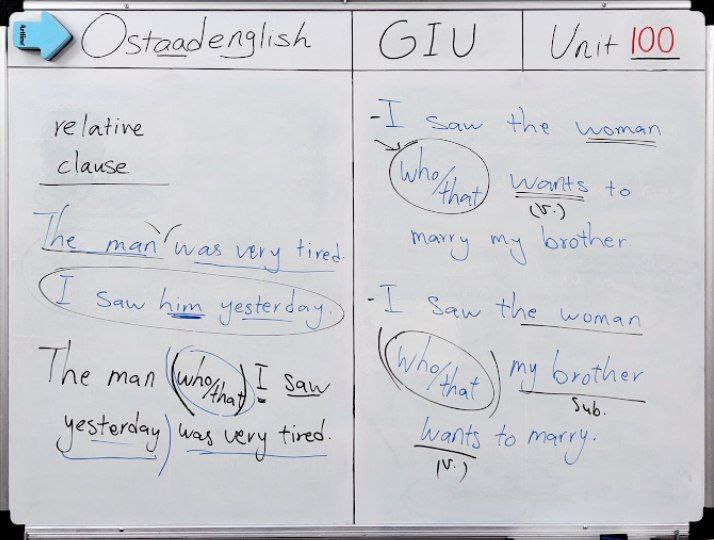 Artline
Ostaadenglish
GIU
Unit 100
relative
clause
The man was very tired.
I saw him yesterday.
The man (who/that) I saw
yesterday) was very tired.
- I saw the woman
who/that wants to
(v.)
marry my brother
- I saw the woman
(who/that) my brother
Sub.
wants to marry.
(v.)